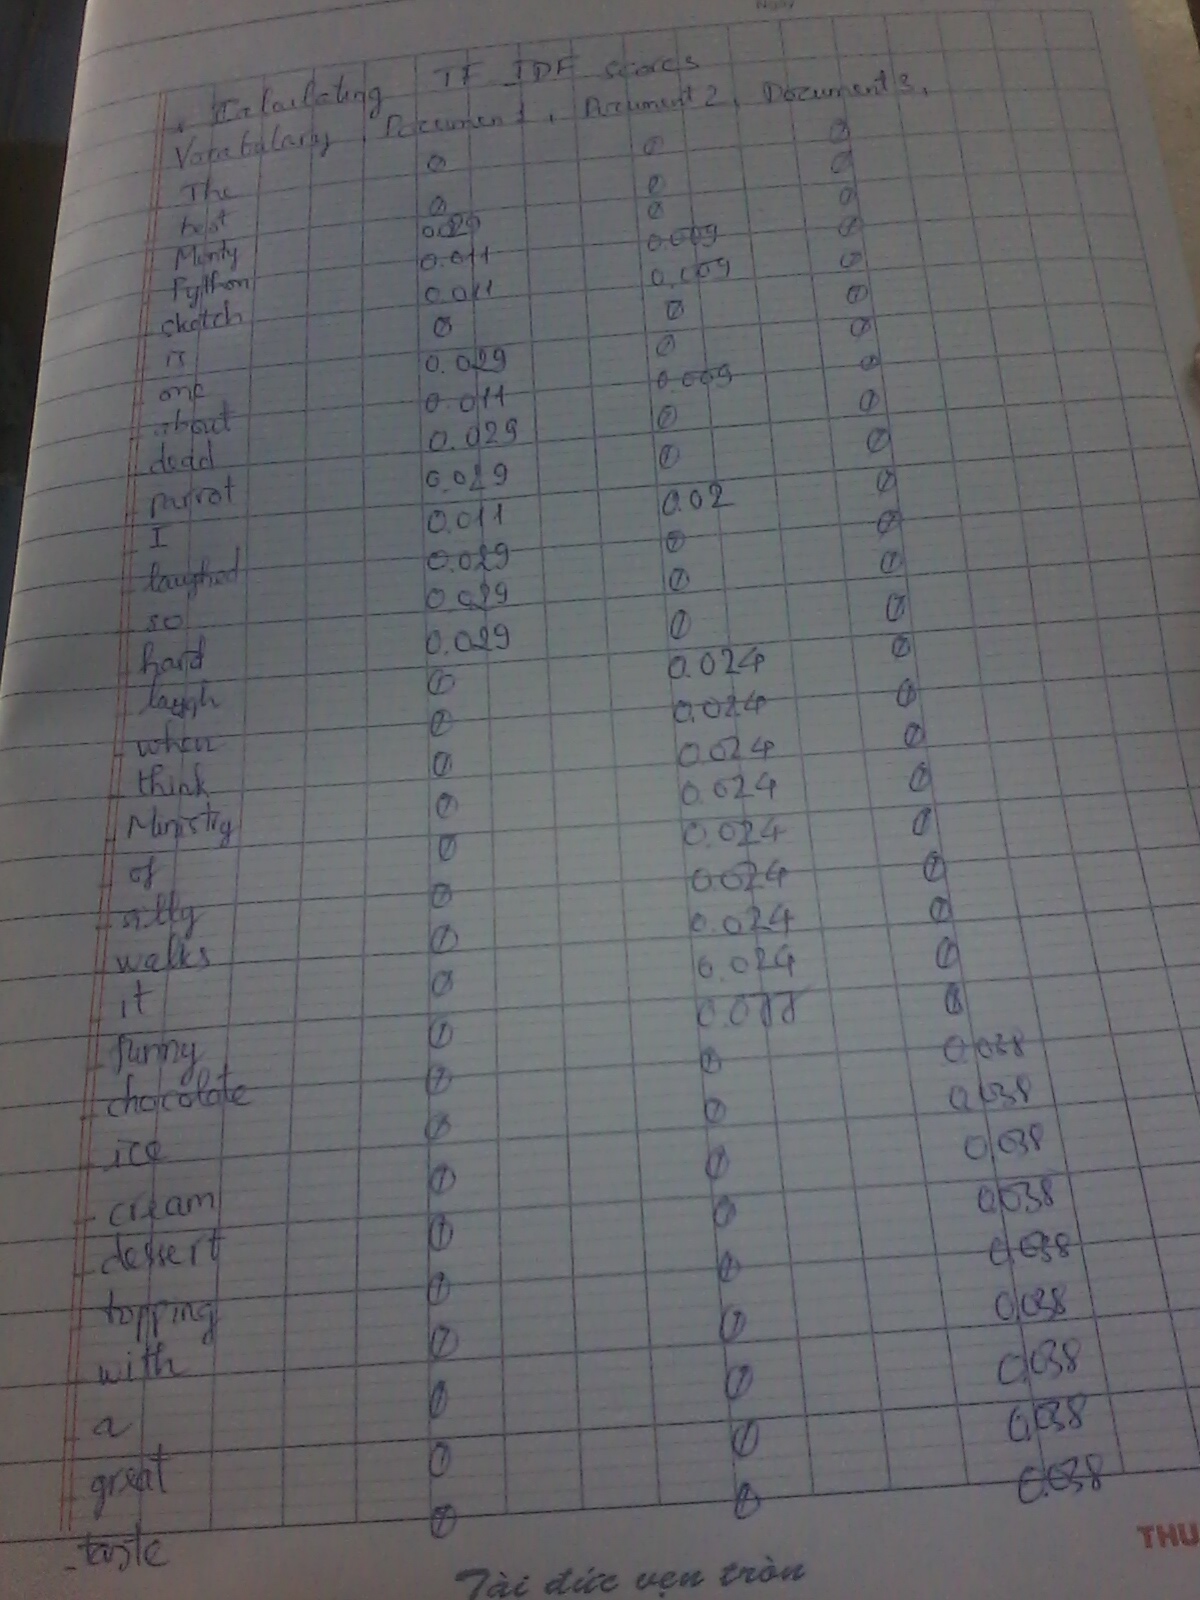 Calculating TF_IDF scores
Vocabulary Document 1, Document 2, Document 3,
The 0 0 0
best 0 0 0
Monty 0.029 0 0
Python 0.011 0.009 0
sketch 0.011 0.009 0
is 0 0 0
one 0.029 0 0
about 0.011 0.009 0
dead 0.029 0 0
parrot 0.029 0 0
I 0.011 0.02 0
laughed 0.029 0 0
so 0.029 0 0
hard 0.029 0 0
laugh 0 0.024 0
when 0 0.024 0
think 0 0.024 0
Ministry 0 0.024 0
of 0 0.024 0
silly 0 0.024 0
walks 0 0.024 0
it 0 0.024 0
funny 0 0
chocolate 0 0 0.038
ice 0 0 0.038
cream 0 0 0.038
dessert 0 0 0.038
topping 0 0 0.038
with 0 0 0.038
a 0 0 0.038
great 0 0 0.038
taste 0 0 0.038
THU
Tài đức vẹn tròn